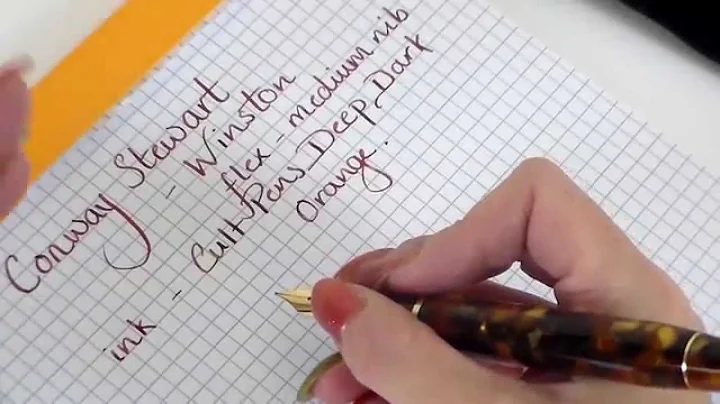 Conway Stewart
- Winston
flex - medium nib
ink - Cult Pens Deep Dark
Orange.